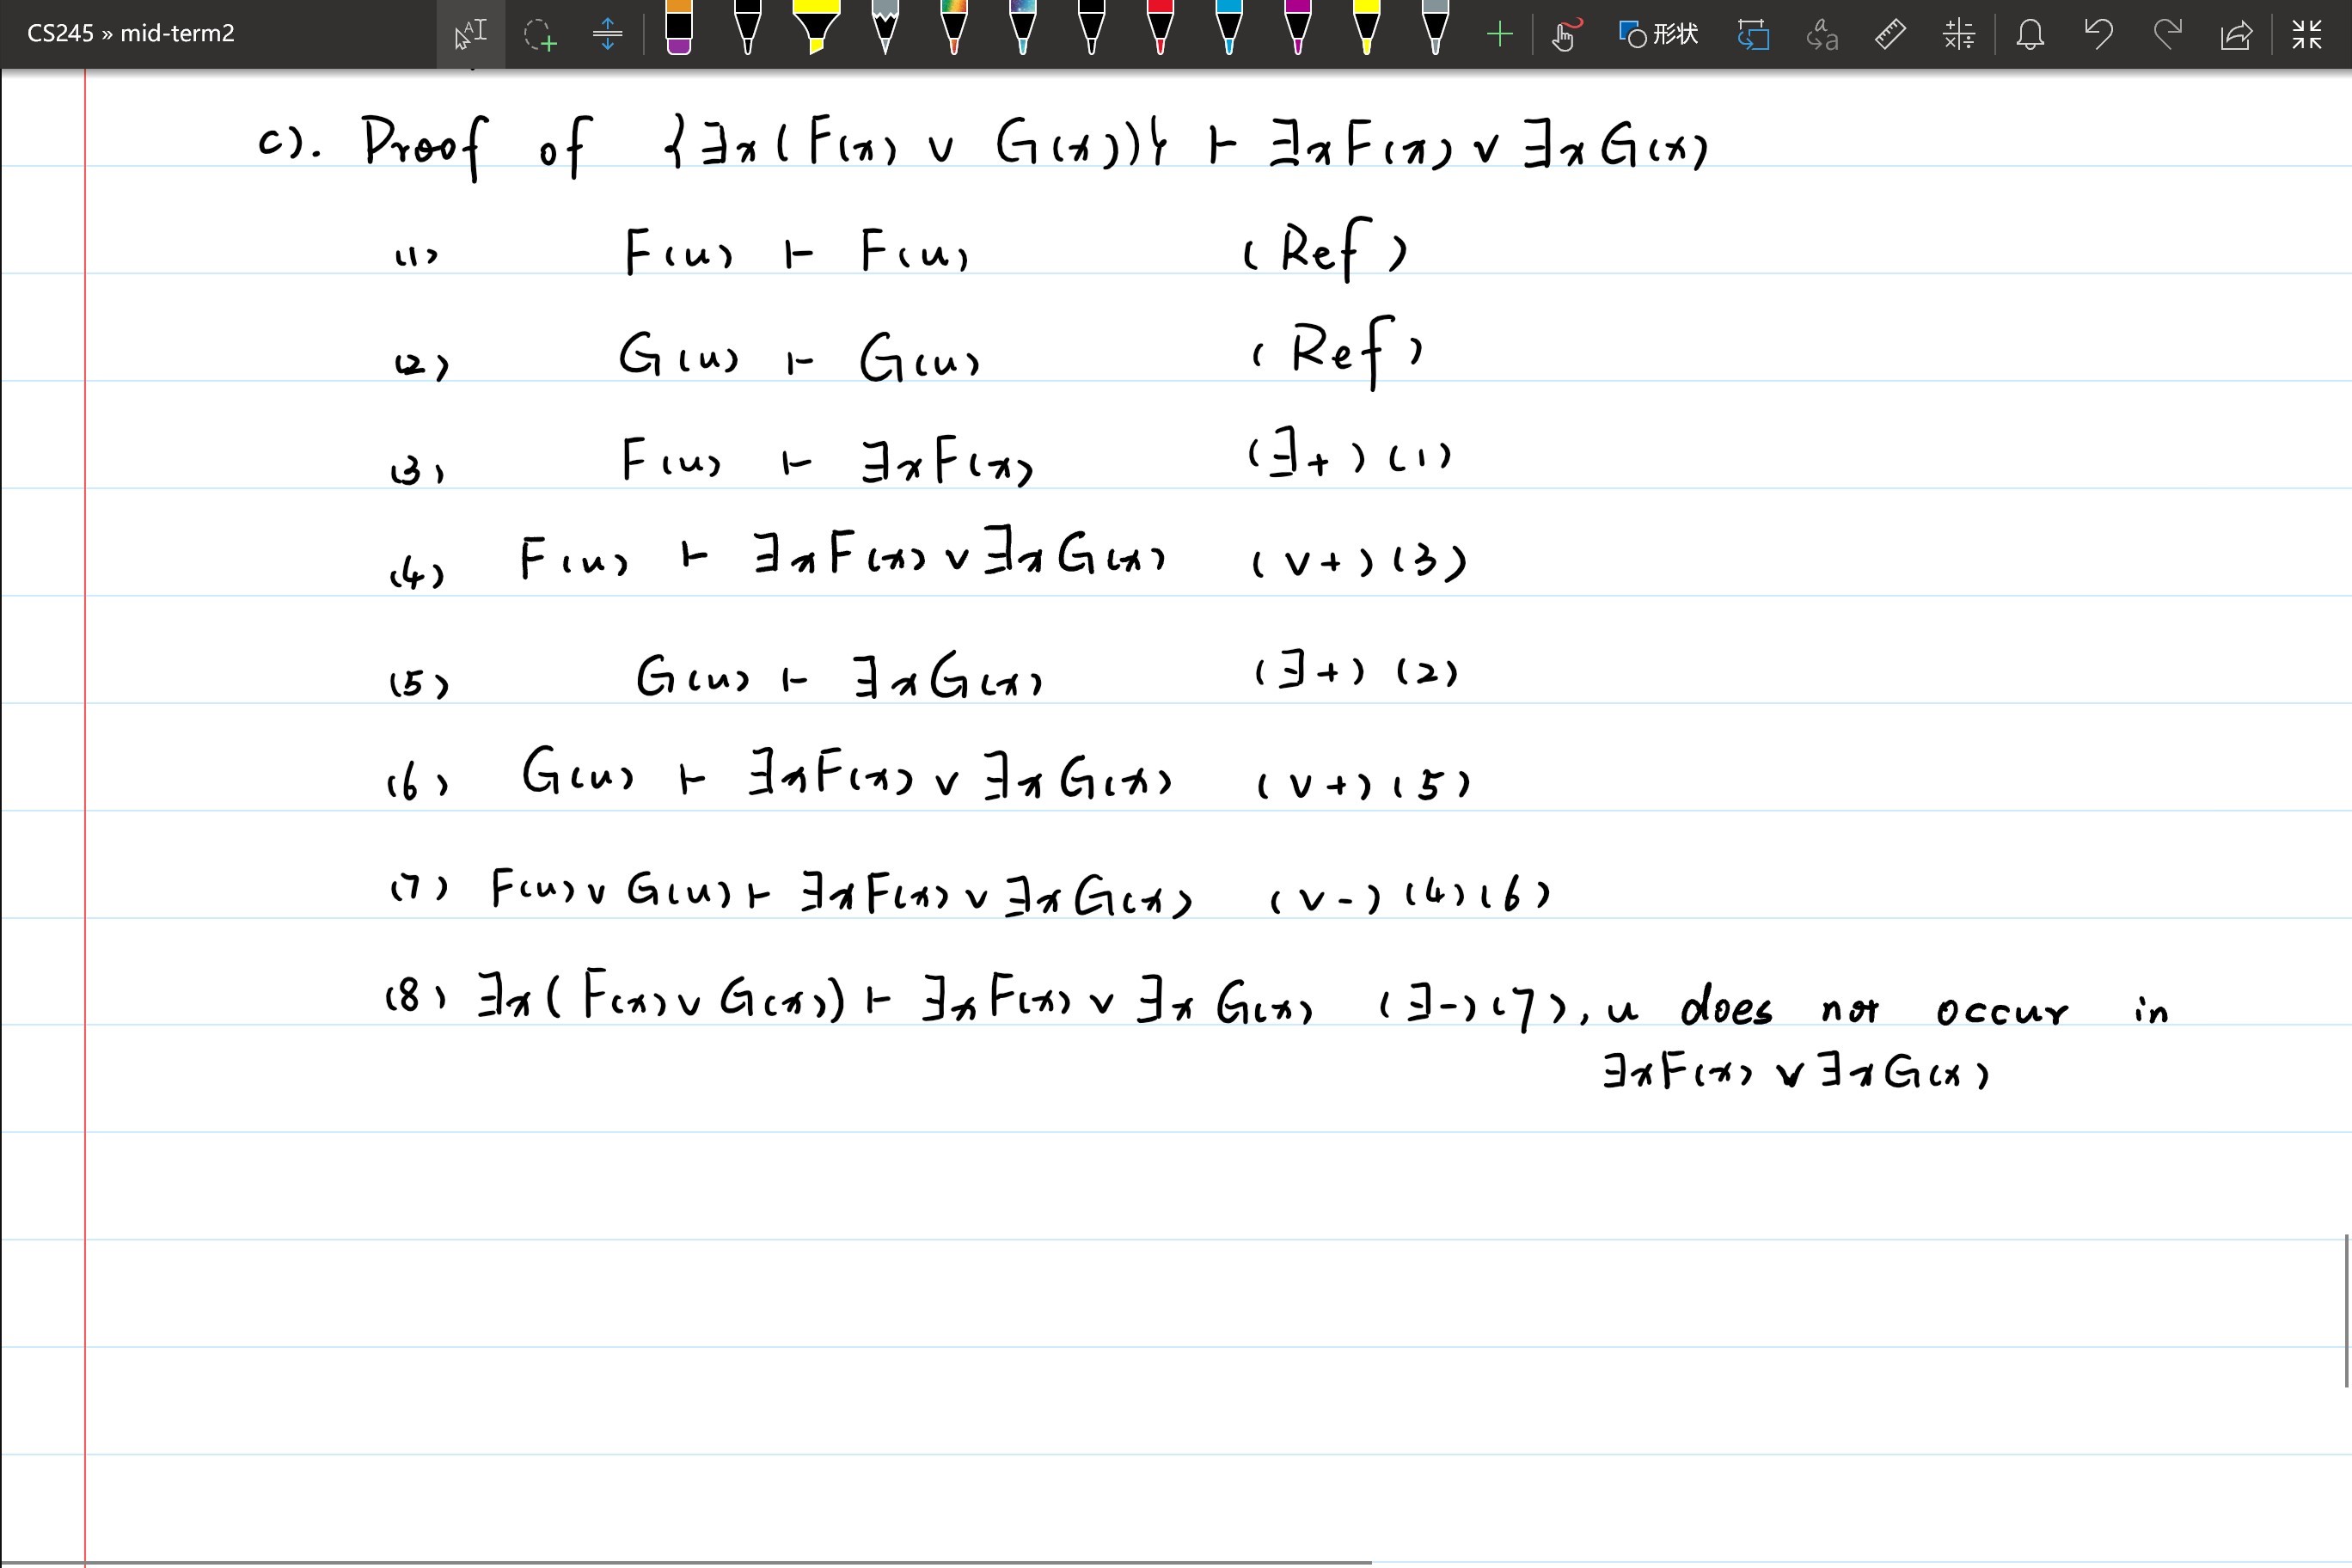 CS245 » mid-term2
形状
c). Proof of {∃x(F(x) ∨ G(x))} ⊢ ∃xF(x) ∨ ∃xG(x)
(1) F(u) ⊢ F(u) (Ref)
(2) G(u) ⊢ G(u) (Ref)
(3) F(u) ⊢ ∃xF(x) (∃+)(1)
(4) F(u) ⊢ ∃xF(x) ∨ ∃xG(x) (∨+)(3)
(5) G(u) ⊢ ∃xG(x) (∃+)(2)
(6) G(u) ⊢ ∃xF(x) ∨ ∃xG(x) (∨+)(5)
(7) F(u) ∨ G(u) ⊢ ∃xF(x) ∨ ∃xG(x) (∨-)(4)(6)
(8) ∃x(F(x) ∨ G(x)) ⊢ ∃xF(x) ∨ ∃xG(x) (∃-)(7), u does not occur in
∃xF(x) ∨ ∃xG(x)